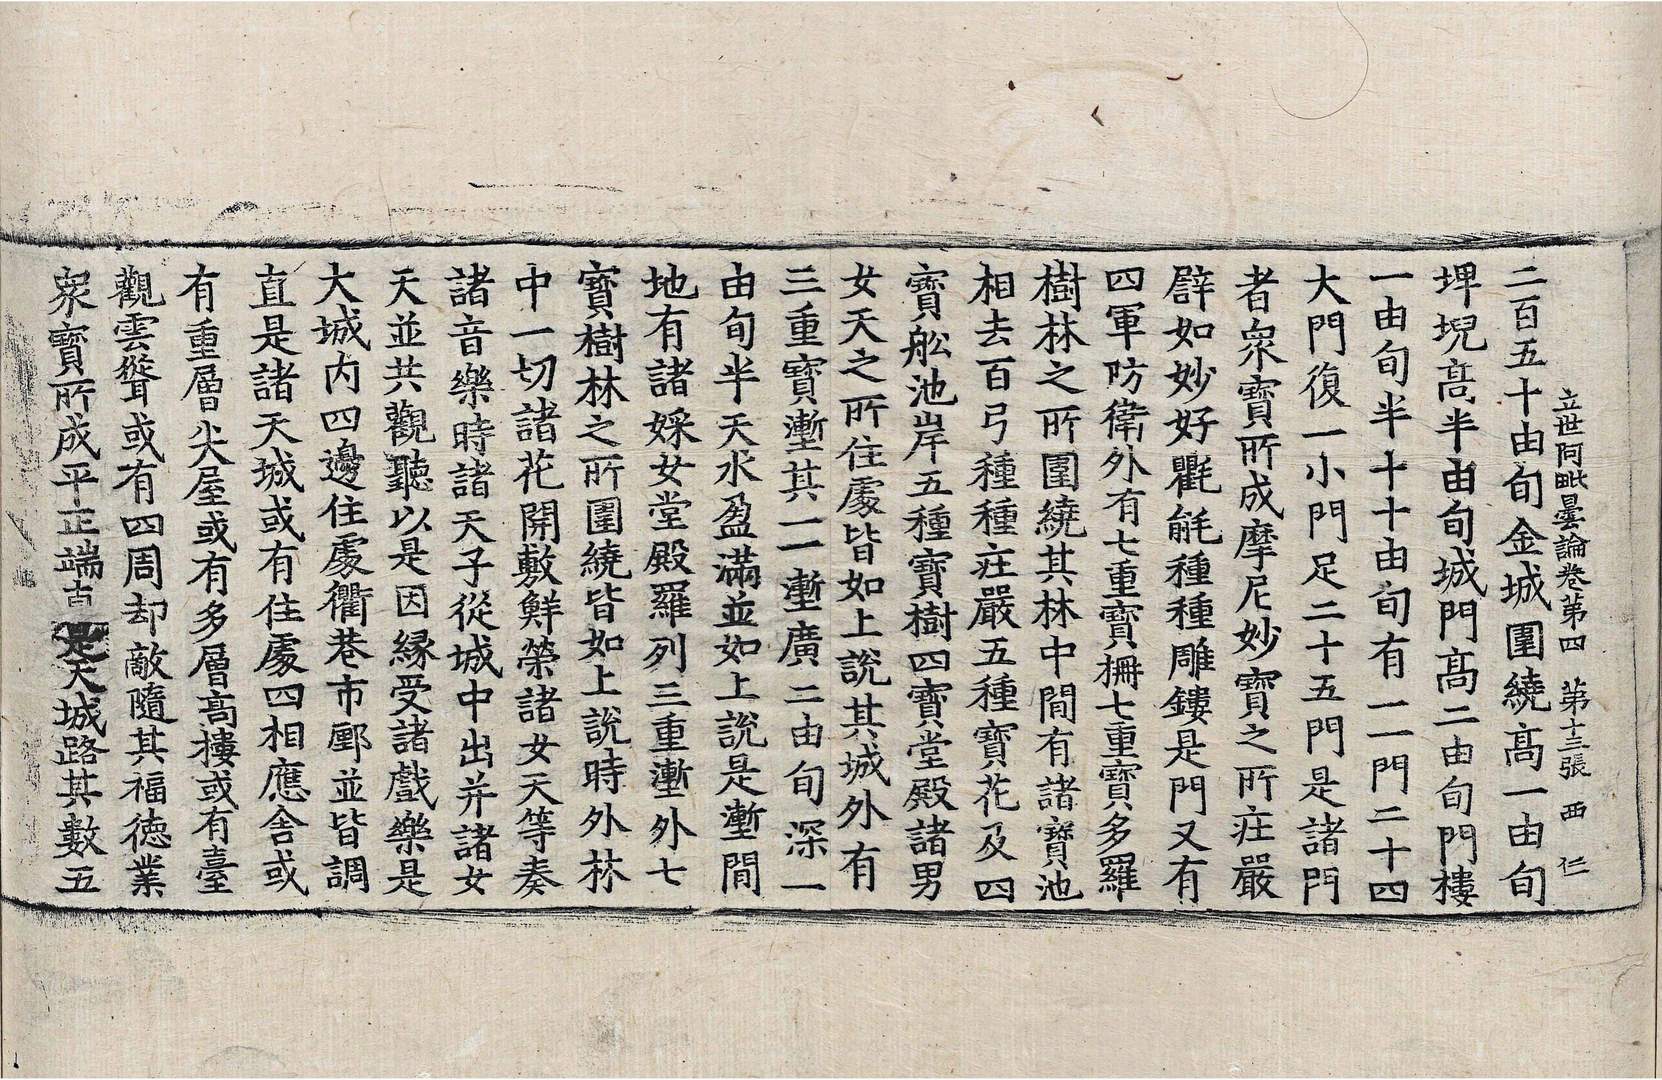 立世阿毗曇論卷第四　第十三張　西　仁
二百五十由旬金城圍繞髙一由旬
埤堄髙半由旬城門髙二由旬門樓
一由旬半十十由旬有一門二十四
大門復一小門足二十五門是諸門
者衆寶所成摩尼妙寶之所庄嚴
譬如妙好氍毹種種雕鏤是門又有
四軍防衛外有七重寶柵七重寶多羅
樹林之所圍繞其林中間有諸寶池
相去百弓種種庄嚴五種寶花及四
寶舩池岸五種寶樹四寶堂殿諸男
女天之所住處皆如上說其城外有
三重寶壍其一一壍廣二由旬深一
由旬半天水盈滿並如上說是壍間
地有諸婇女堂殿羅列三重壍外七
寶樹林之所圍繞皆如上說時外林
中一切諸花開敷鮮榮諸女天等奏
諸音樂時諸天子從城中出并諸女
天並共觀聽以是因緣受諸戲樂是
大城内四邊住處衢巷市鄽並皆調
直是諸天城或有住處四相應舍或
有重層尖屋或有多層髙樓或有臺
觀雲聳或有四周却敵隨其福德業
衆寶所成平正端吉是天城路其數五